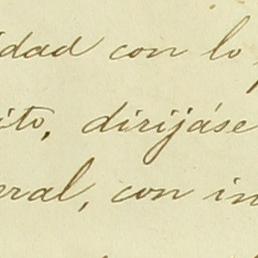 idad con lo
ito, dirijáse
eral, con in